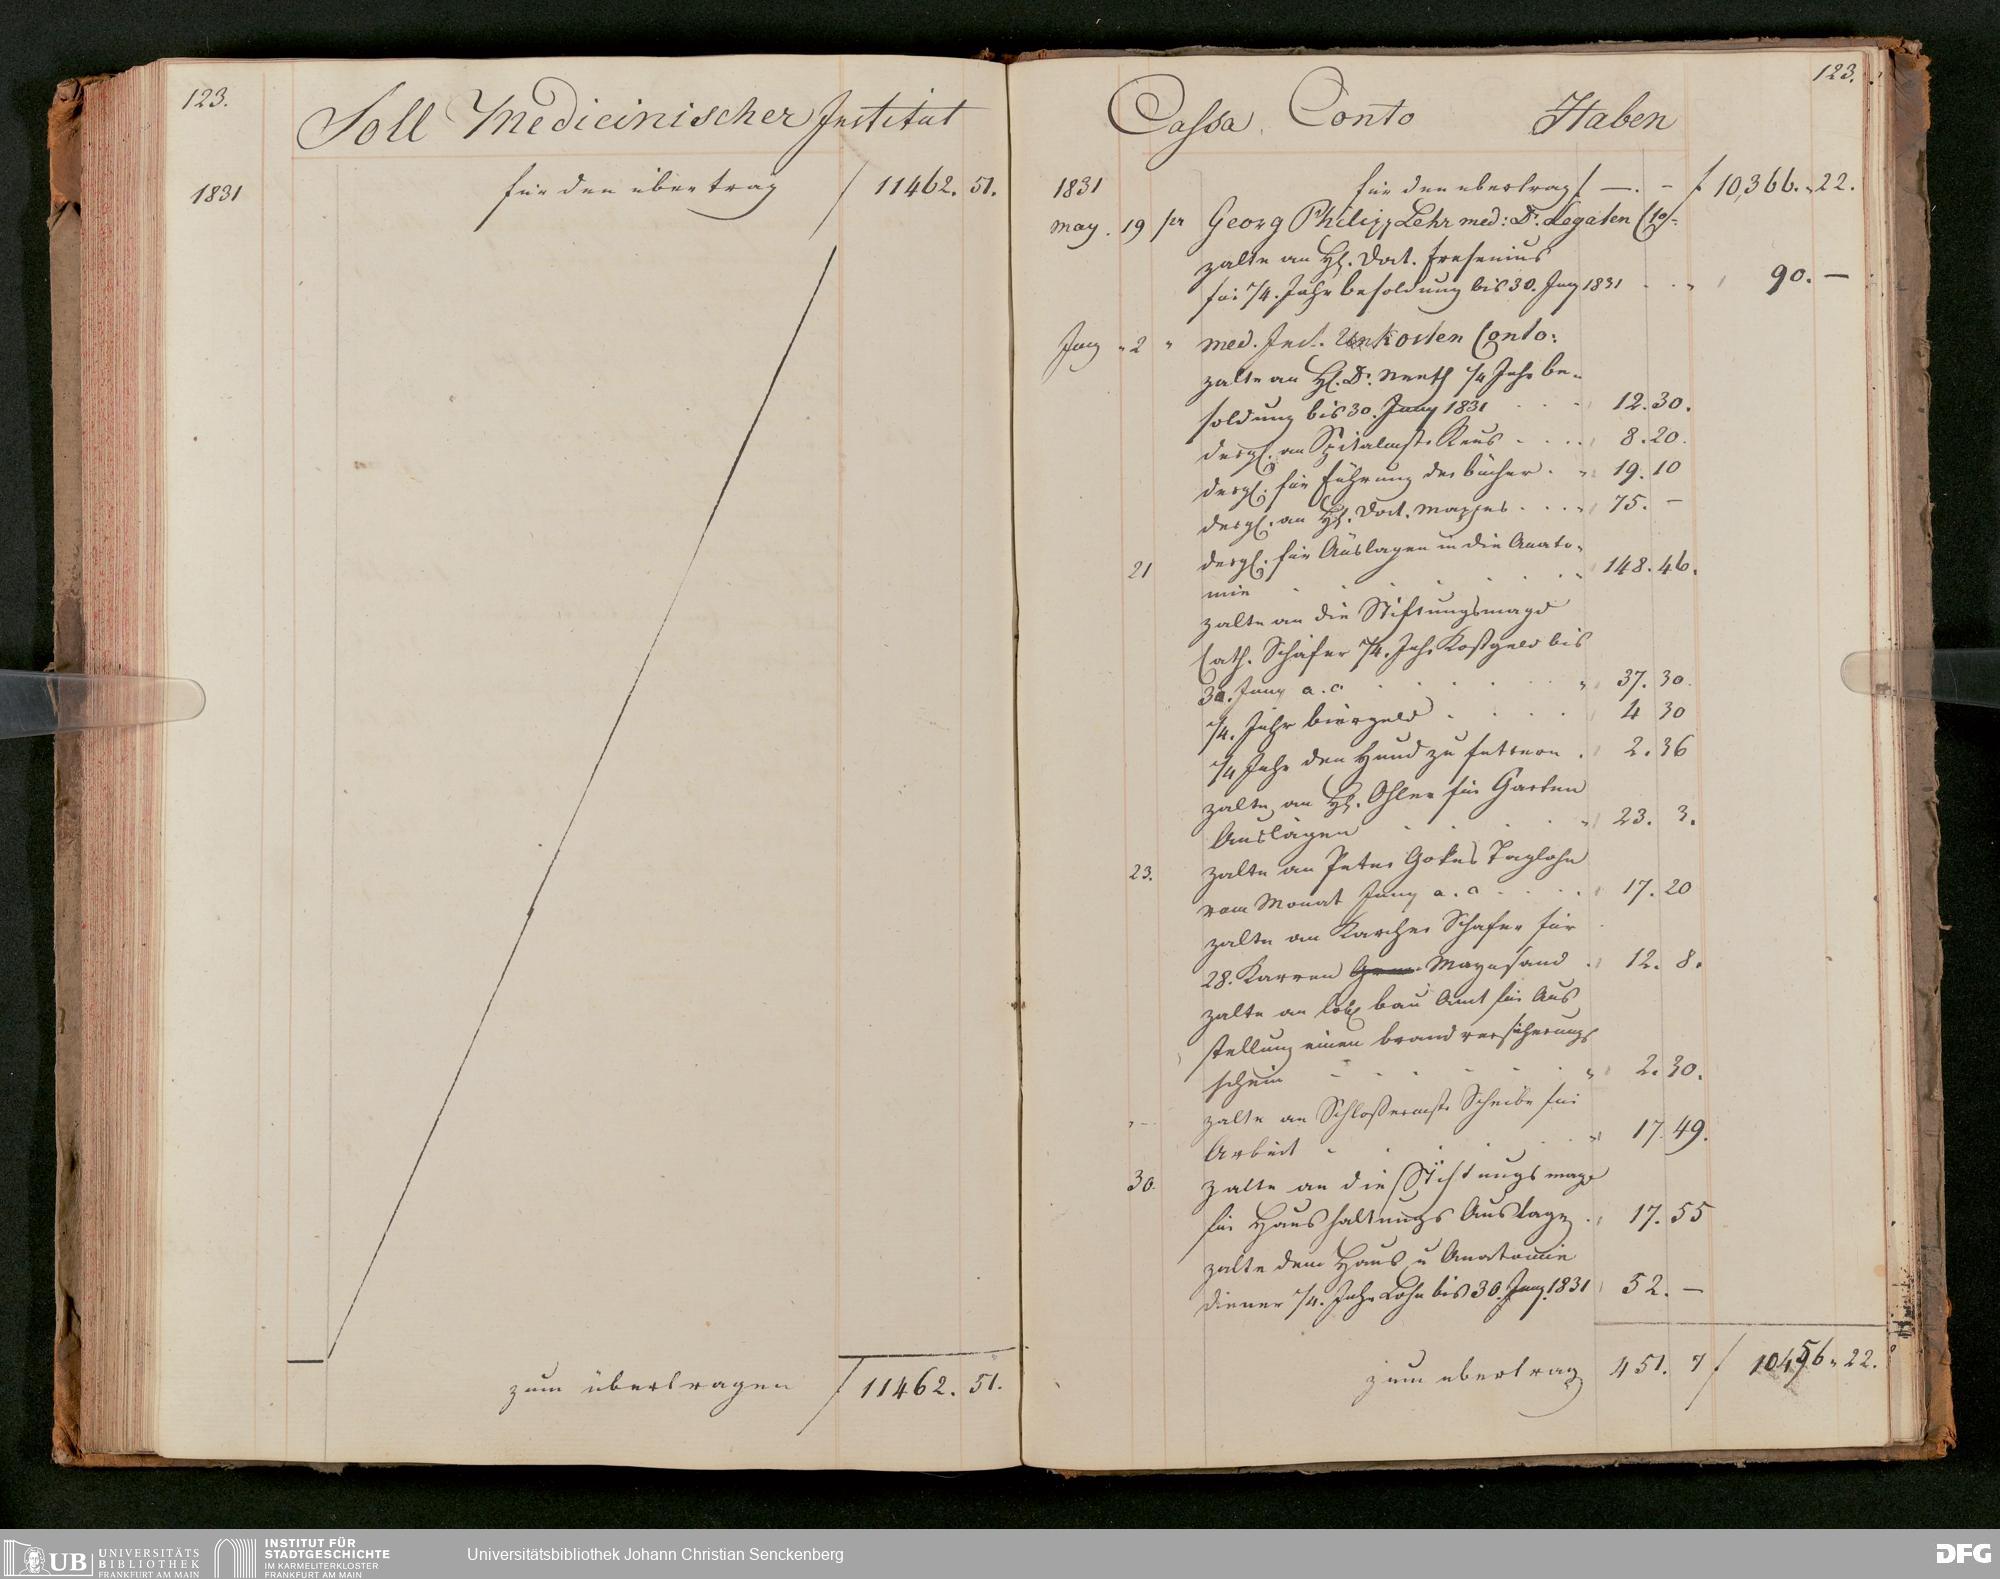 123.
Soll Medicinischer Institut
1831 für den übertrag f 11462. 51.
zum übertragen f 11462. 51.
123.
Cassa Conto Haben
1831 für den übertrag f —. – f 10,366. 22.
may. 19 per Georg Philipp Lehr med: Dr. Legaten Cto:
zalte an H. Doct. Fresenius
für 1/4. Jahr besoldung bis 30. Juny 1831 . . " 90. —
Juny " 2 " med. Inst. Unkosten Conto:
zalte an H. Dr. Neeff 1/4 Jahr be-
soldung bis 30. Juny 1831 . . . 12. 30.
desgl. an Spitalmstr. Reus . . . . 8. 20.
desgl. für Führung der bücher . " 19. 10
desgl. an H. Doct. Mappes . . . " 75. –
21 desgl. für Auslagen in die Anato-
mie . . . . . . " 148. 46.
zalte an die Stiftungsmagd
Cath. Schäfer 1/4. Jahr Kostgeld bis
30. Juny a. c. . . . . . " 37. 30.
1/4. Jahr biergeld . . . . 4 30
1/4 Jahr den Hund zu futtern . 2. 36
zalte an H. Ohler für Garten
Auslagen . . . . . " 23. 3.
23. zalte an Peter Taglohn
vom Monat Juny a. c. . . . . 17. 20
zalte an Karcher Schafer für
28. Karren Maynsand . 12. 8.
zalte an löbl. bau Amt für Aus
stellung einen brand versicherungs
schein - - - - - . " 2. 30.
zalte an Schloßermstr. Scheibe für
Arbeit - . . . . . " 17. 49.
30. zalte an die Stiftungs magd
für Haushaltungs Auslage . 17. 55
zalte dem Haus u Anatomie
diener 1/4. Jahr Lohn bis 30. Juny. 1831 52. —
zum übertrag 451. 7 f 10456. 22.
UB UNIVERSITÄTS
BIBLIOTHEK
FRANKFURT AM MAIN
INSTITUT FÜR
STADTGESCHICHTE
IM KARMELITERKLOSTER
FRANKFURT AM MAIN
Universitätsbibliothek Johann Christian Senckenberg
DFG